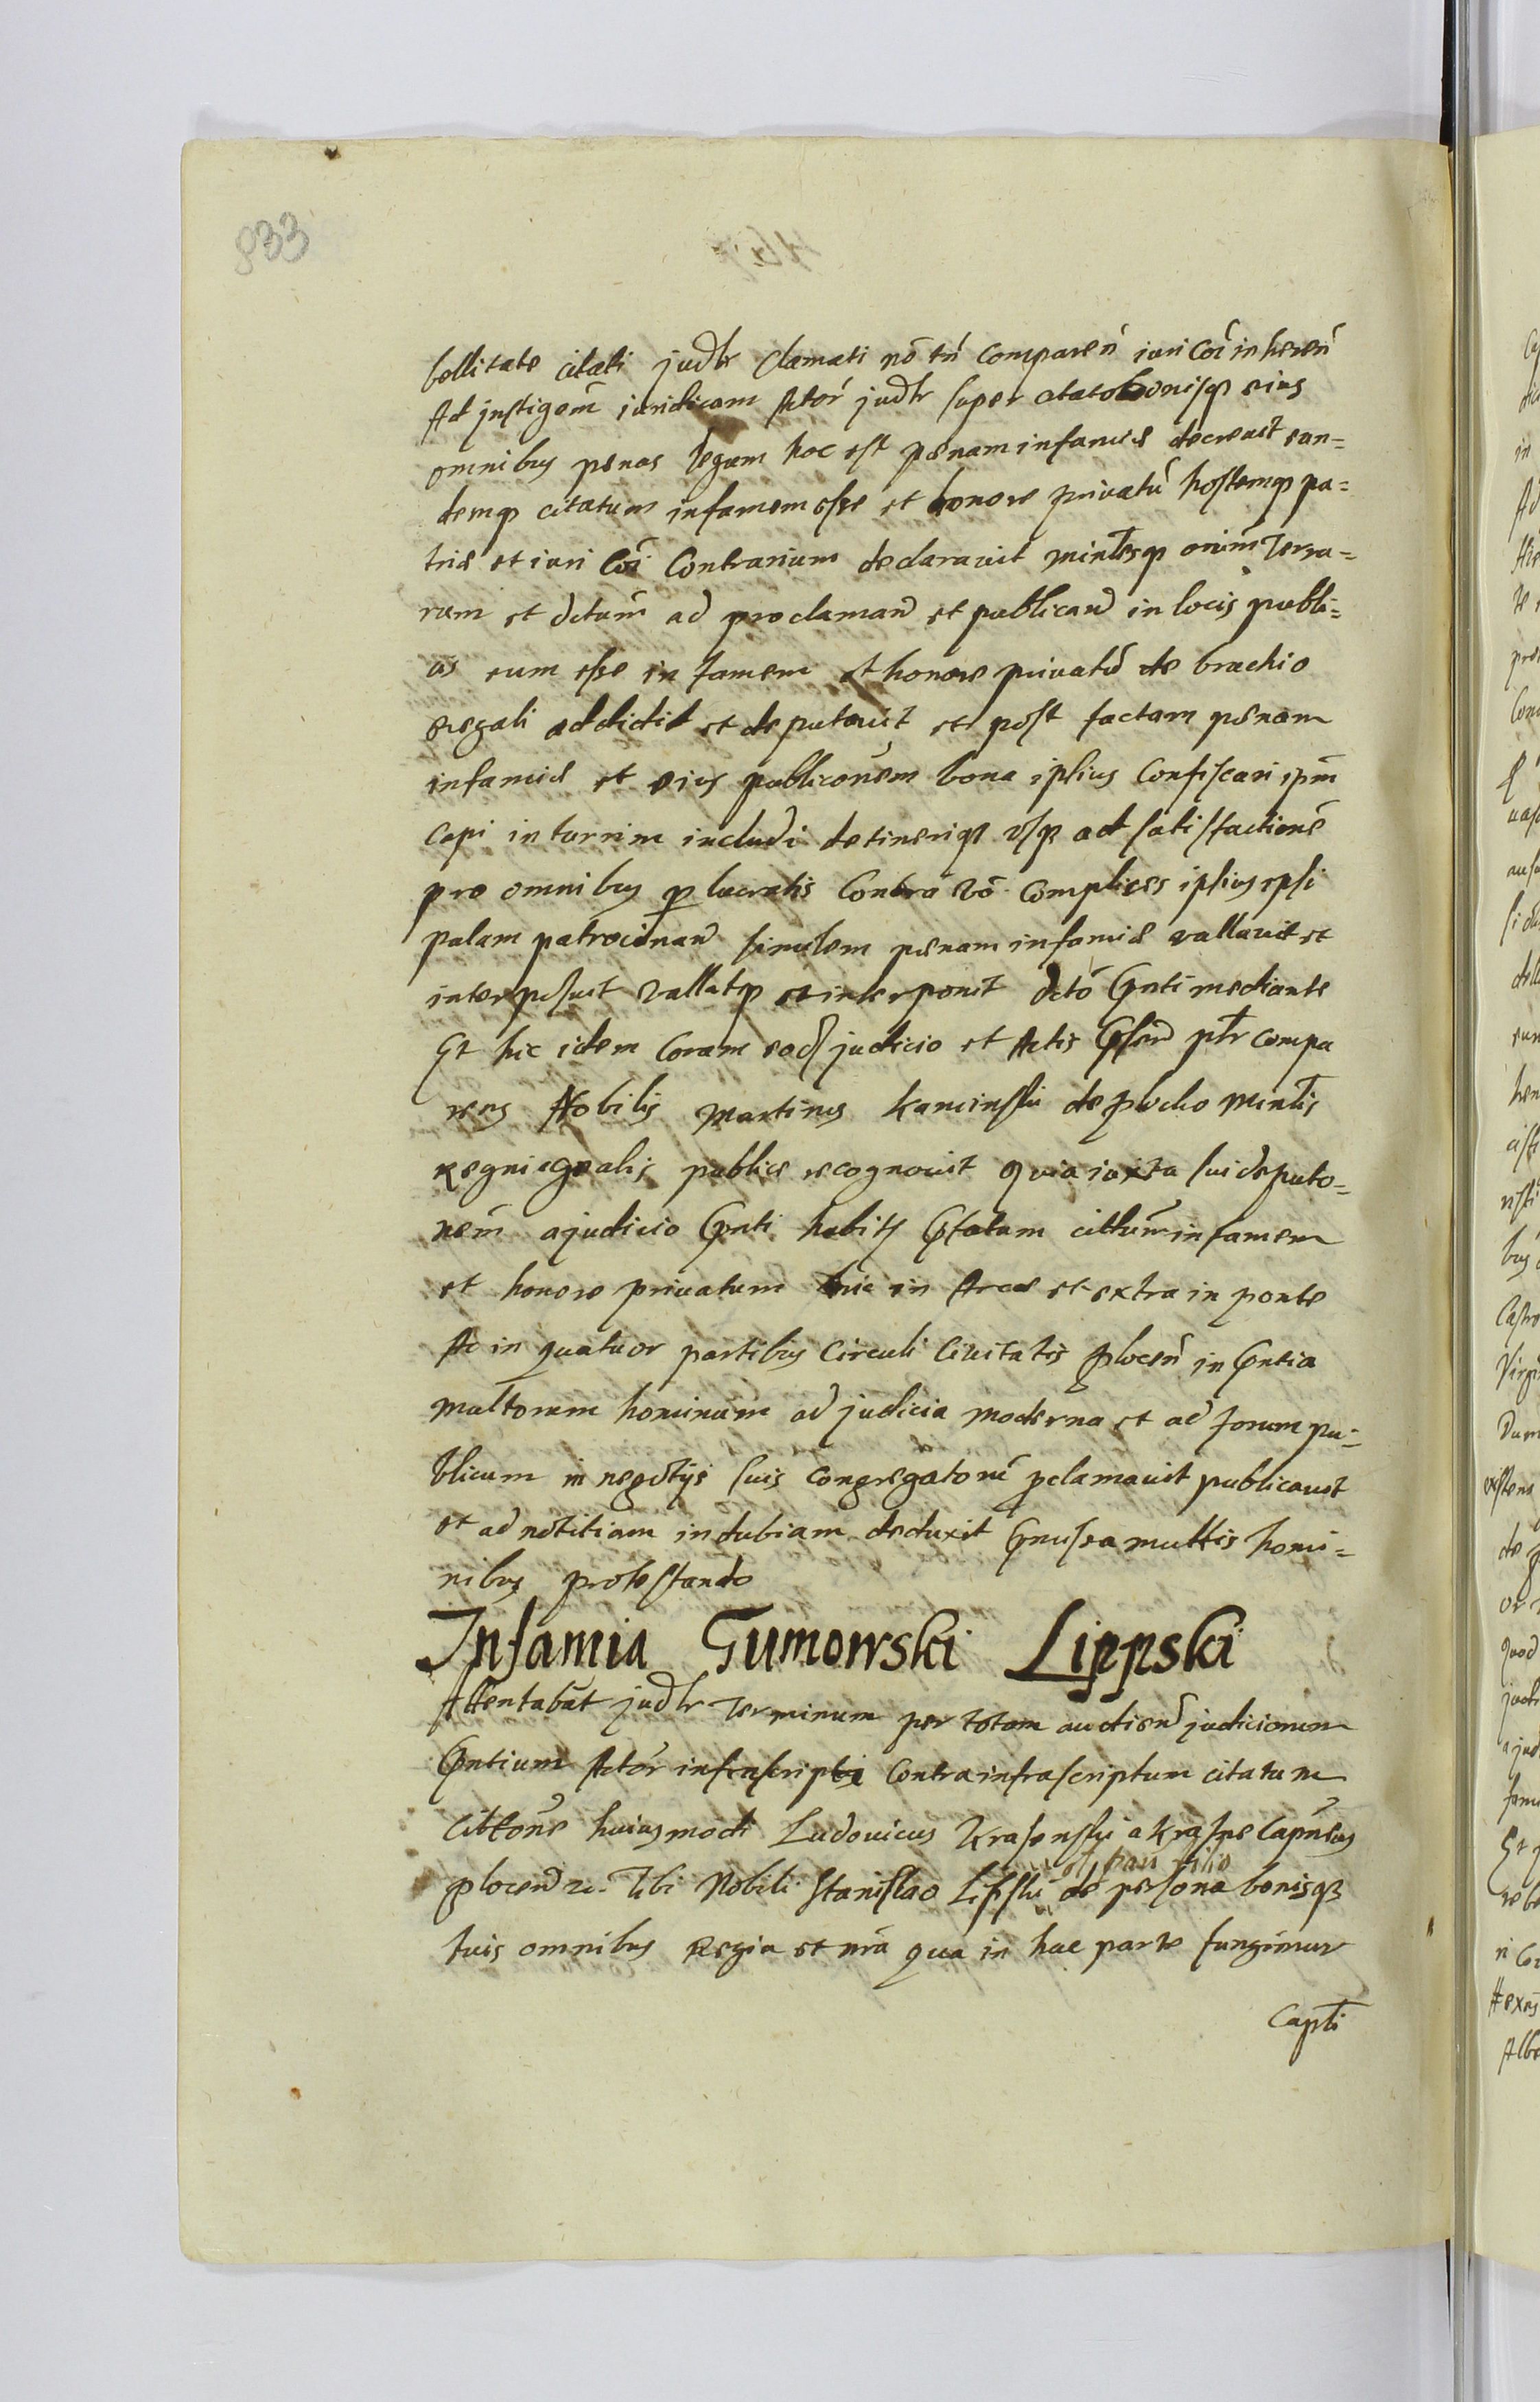 833
bellitate citati judlr clamati nō tn̄ comparen̄ iuri cōi inheren̄
Ad instigeōm iuridicam Actōr judlr super citato bonisq3 eius
omnibus penas legum hoc est pœnam infamiæ decrevit eun=
demq3 citatum infamem esse et honore privatū hostemq3 pa=
triæ et iuri cōi contrarium declaravit mintlesq3 oniūm Terra=
rum et dctūm ad proclamand et publicand in locis publi=
cis eum esse infamem et honore privatū de brachio
regali addidit et deputavit et post factam pœnam
infamiæ et eius publiconēm bona ipsius confiscari ipm̄
capi in turrim includi detineriq3 usq3 ad satisfactionē
pro omnibus p lucratis Contra vō complices ipsius ipsi
palam patrocinand similem pœnam infamiæ vallavit et
interposuit vallatq3 et interponit dctō Gnti mediante
Et hic idem Coram eod judicio et Actis psen ptr compa
rens Nobilis Martinus Kaminski de Plocko Mintlis
Regni gnealis publice recognovit quia iuxta sui deputo=
nēm a judicio Gnti habitā Gstatum cittūm infamem
et honore privatum hic in Arce et extra in ponte
Ac in quatuor partibus Circuli Civitatis Plocen̄ in Gntia
multorum hominum ad judicia moderna et ad forum pu=
blicum in negotijs suis congregatorū pclamavit publicavit
et ad notitiam indubiam deduxit Gmissa multis homi=
nibus protestando
Infamia Gumowski Lippski
Attentabāt judlr Terminum per totam audiend judiciorum
Gntium Actōr infrascripti Contra infrascriptum citatum
Cittōne huiusmodi Ludovicus Krasinski a Krasne Capneus
Plocen̄ Tibi Nobili Stanislao Lipski de persona bonisq3
tuis omnibus Regia et nrā qua in hac parte fungimur
Capti